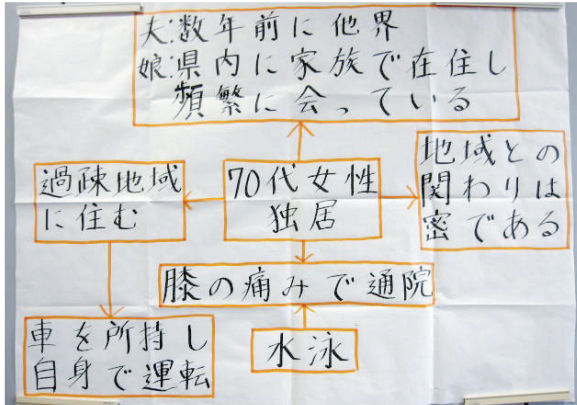 夫:数年前に他界
娘:県内に家族で在住し
頻繁に会っている
過疎地域
に住む
70代女性
独居
地域との
関わりは
密である
膝の痛みで通院
車を所持し
自身で運転
水泳